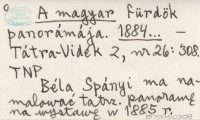 A magyar Fürdők
panorámája. 1884... —
Tátra-Vidék 2, nr 26: 308.
TNP
Béla Spányi ma na-
malować tatrz. panoramę
na wystawę w 1885 r.